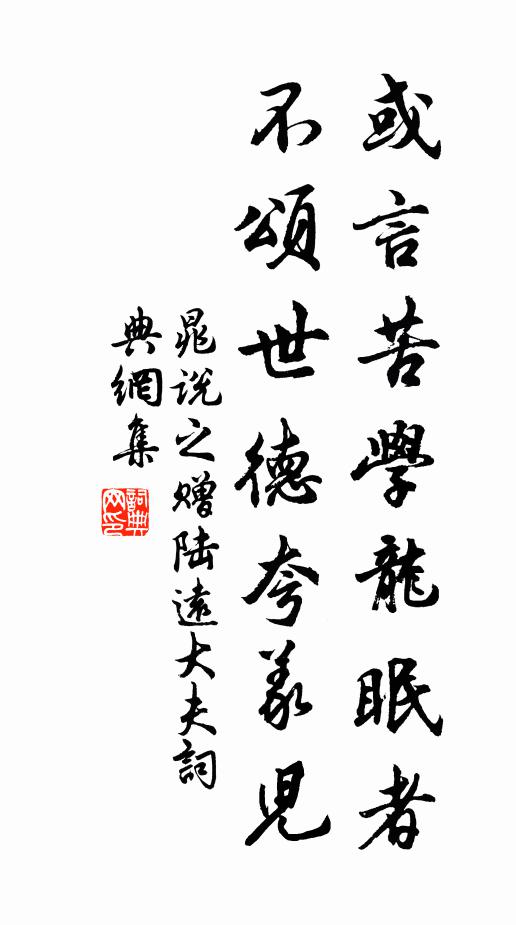 或言苦學龍眠者
不頌世德夸羲兒
晁說之贈陸遠大夫詞
典網集
詞典
网印